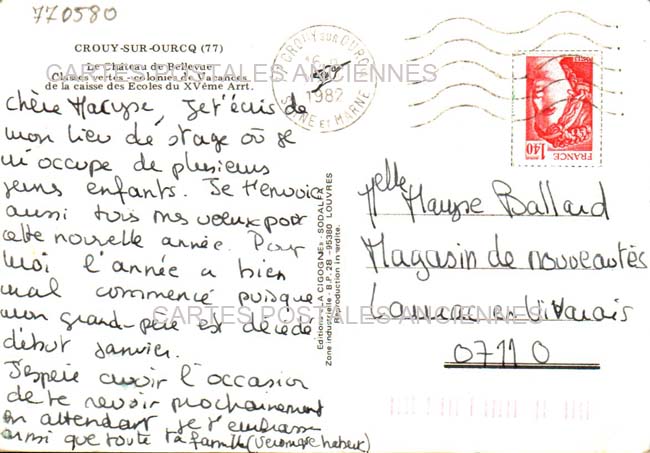 770580
CROUY-SUR-OURCQ (77)
Le Château de Bellevue
Classes vertes - colonies de Vacances
de la caisse des Ecoles du XVème Arrt.
CARTES POSTALES ANCIENNES
CROUY SUR OURCQ
1982
SEINE ET MARNE
POSTES
1,40
FRANCE
Chère Maryse, Je t'écris de
mon lieu de stage où je
m'occupe de plusieurs
jeunes enfants. Je t'envoie
aussi tous mes voeux pour
cette nouvelle année. Pour
moi l'année a bien
mal commencé puisque
mon grand-père est décédé
début janvier.
J'espère avoir l'occasion
de te revoir prochainement
en attendant je t'embrasse
ainsi que toute ta famille (Véronique
Editions "LA CIGOGNE" - SODALFX
Zone industrielle - B.P. 28 - 95380 LOUVRES
Reproduction interdite.
Melle Maryse Ballard
Magasin de nouveautés
en Vivarais
07110
CARTES POSTALES ANCIENNES